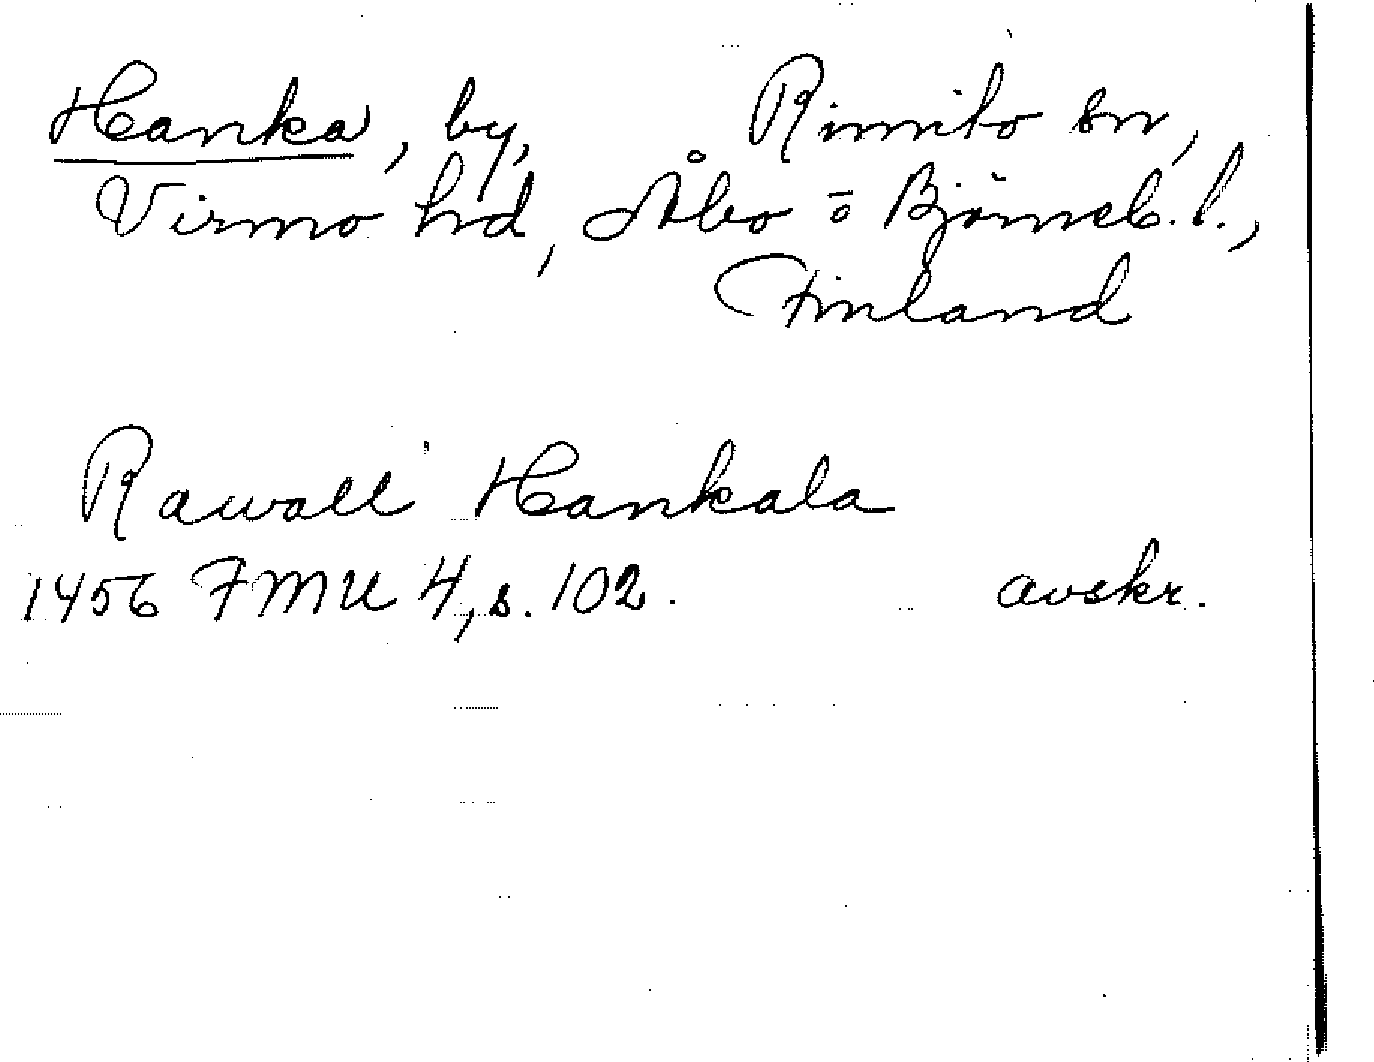 Hanka, by, Rimito sn,
Virmo hd, Åbo o Björneb. l.,
Finland
Rawall Hankala
1456 FMU 4, s. 102. avskr.